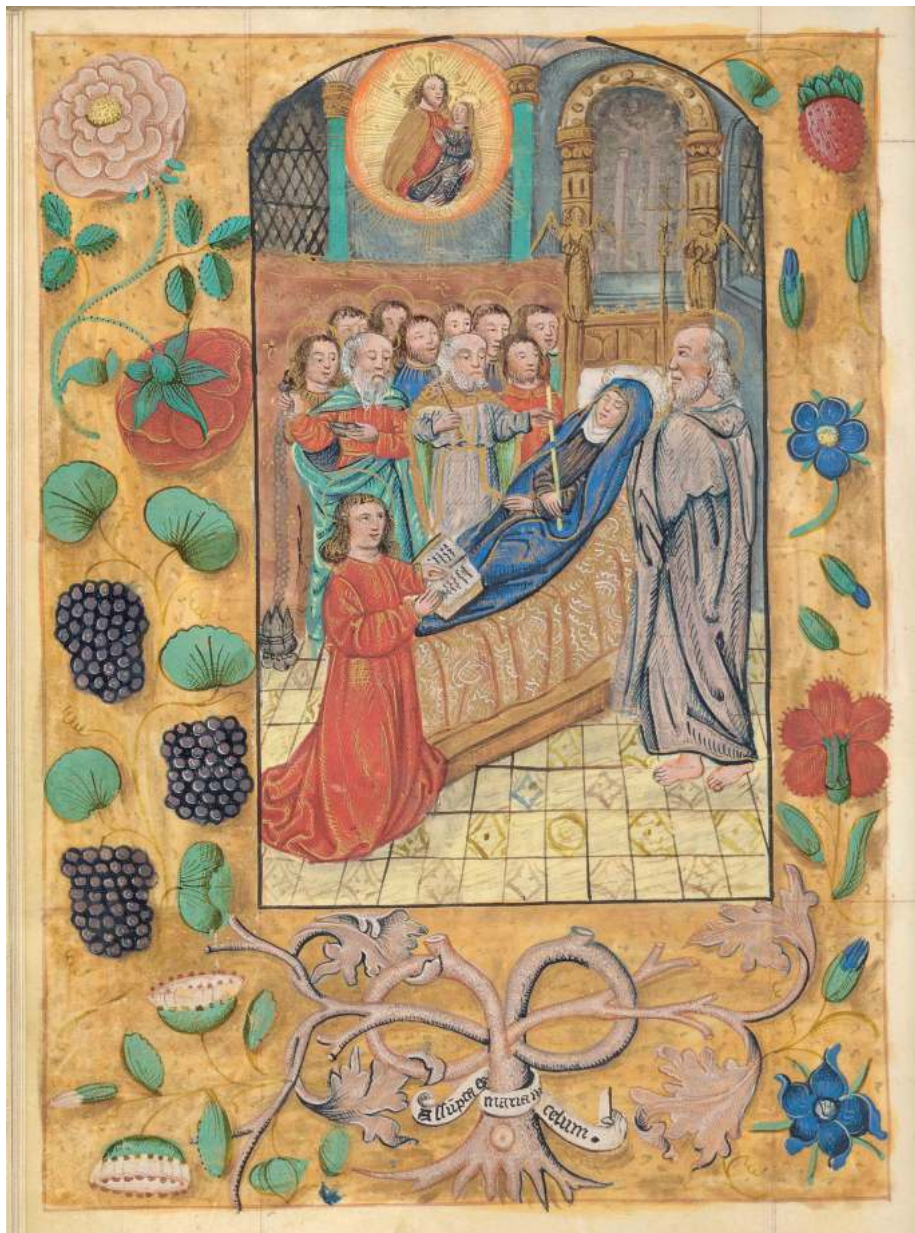 Assūpta maria celum.